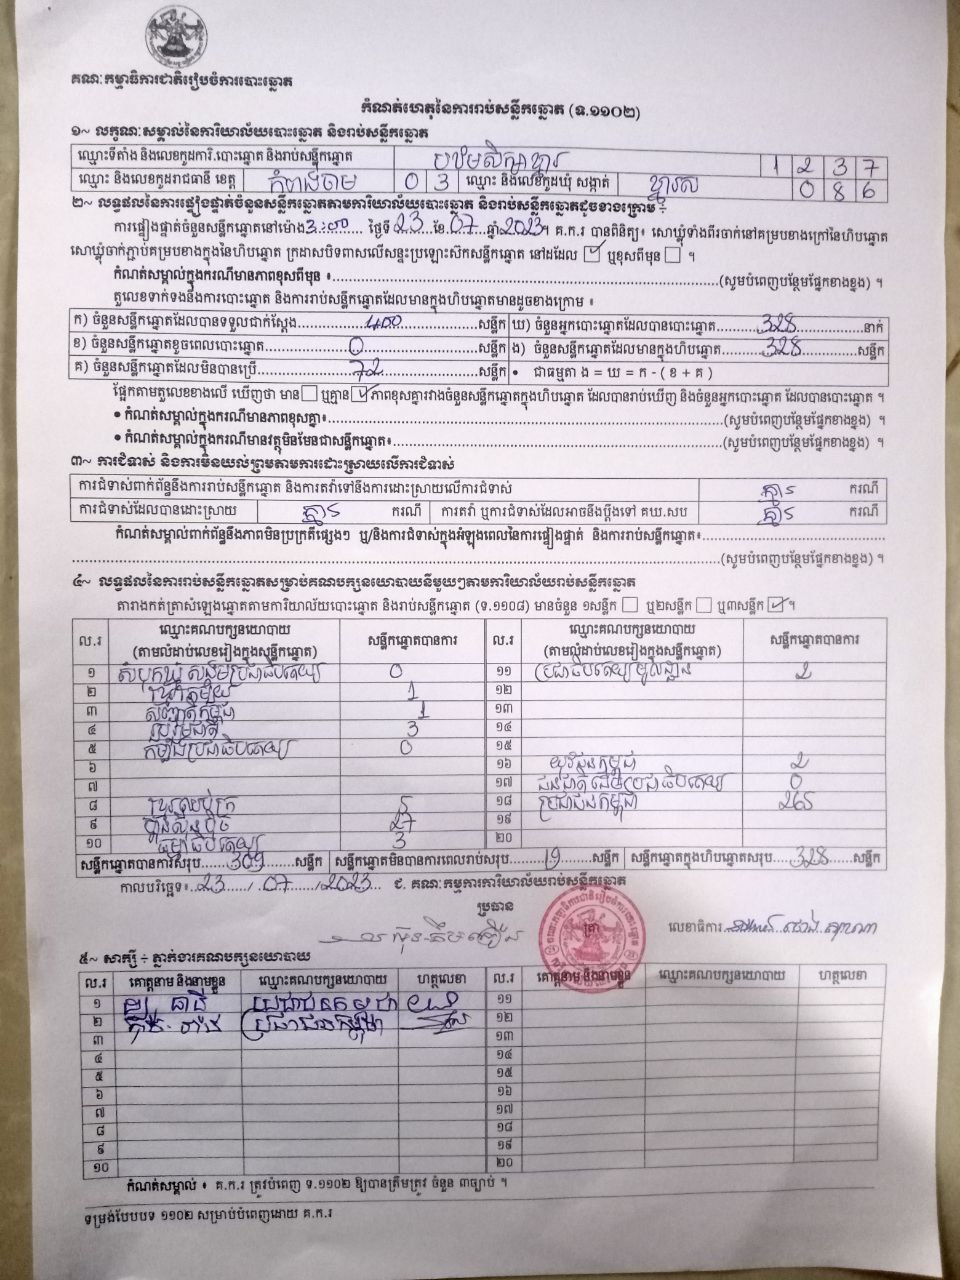 គណៈកម្មាធិការជាតិរៀបចំការបោះឆ្នោត
កំណត់ហេតុនៃការរាប់សន្លឹកឆ្នោត (ទ.១១០២)
១~ លក្ខណៈសម្គាល់នៃការិយាល័យបោះឆ្នោត និងរាប់សន្លឹកឆ្នោត
ឈ្មោះទីតាំង និងលេខកូដការិ.បោះឆ្នោត និងរាប់សន្លឹកឆ្នោត 1 2 3 7
ឈ្មោះ និងលេខកូដរាជធានី ខេត្ត កំពង់ចាម 0 3 ឈ្មោះ និងលេខកូដឃុំ សង្កាត់ 0 8 6
២~ លទ្ធផលនៃការផ្ទៀងផ្ទាត់ចំនួនសន្លឹកឆ្នោតតាមការិយាល័យបោះឆ្នោត និងរាប់សន្លឹកឆ្នោតដូចខាងក្រោម ÷
ការផ្ទៀងផ្ទាត់ចំនួនសន្លឹកឆ្នោតនៅម៉ោង 3:00 ថ្ងៃទី 23 ខែ 07 ឆ្នាំ 2023 ។ គ.ក.រ បានពិនិត្យ៖ សោឃ្លុំទាំងពីរចាក់នៅគម្របខាងក្រៅនៃហិបឆ្នោត
សោឃ្លុំចាក់ភ្ជាប់គម្របខាងក្នុងនៃហិបឆ្នោត ក្រដាសបិទពាសលើសន្ទះប្រឡោះស៊កសន្លឹកឆ្នោត នៅដដែល ☑ ឬខុសពីមុន ☐ ។
កំណត់សម្គាល់ក្នុងករណីមានភាពខុសពីមុន ៖ (សូមបំពេញបន្ថែមផ្នែកខាងខ្នង) ។
តួលេខទាក់ទងនឹងការបោះឆ្នោត និងការរាប់សន្លឹកឆ្នោតដែលមានក្នុងហិបឆ្នោតមានដូចខាងក្រោម ៖
ក) ចំនួនសន្លឹកឆ្នោតដែលបានទទួលជាក់ស្តែង 400 សន្លឹក ឃ) ចំនួនអ្នកបោះឆ្នោតដែលបានបោះឆ្នោត 328 នាក់
ខ) ចំនួនសន្លឹកឆ្នោតខូចពេលបោះឆ្នោត 0 សន្លឹក ង) ចំនួនសន្លឹកឆ្នោតដែលមានក្នុងហិបឆ្នោត 328 សន្លឹក
គ) ចំនួនសន្លឹកឆ្នោតដែលមិនបានប្រើ 72 សន្លឹក • ជាធម្មតា ង = ឃ = ក - ( ខ + គ )
ផ្អែកតាមតួលេខខាងលើ ឃើញថា មាន ☐ ឬគ្មាន ☑ ភាពខុសគ្នារវាងចំនួនសន្លឹកឆ្នោតក្នុងហិបឆ្នោត ដែលបានរាប់ឃើញ និងចំនួនអ្នកបោះឆ្នោត ដែលបានបោះឆ្នោត ។
• កំណត់សម្គាល់ក្នុងករណីមានភាពខុសគ្នា៖ (សូមបំពេញបន្ថែមផ្នែកខាងខ្នង) ។
• កំណត់សម្គាល់ក្នុងករណីមានវត្ថុមិនមែនជាសន្លឹកឆ្នោត៖ (សូមបំពេញបន្ថែមផ្នែកខាងខ្នង) ។
៣~ ការជំទាស់ និងការមិនយល់ព្រមតាមការដោះស្រាយលើការជំទាស់
ការជំទាស់ពាក់ព័ន្ធនឹងការរាប់សន្លឹកឆ្នោត និងការតវ៉ាទៅនឹងការដោះស្រាយលើការជំទាស់ គ្មាន ករណី
ការជំទាស់ដែលបានដោះស្រាយ គ្មាន ករណី ការតវ៉ា ឬការជំទាស់ដែលអាចនឹងប្តឹងទៅ គឃ.សប គ្មាន ករណី
កំណត់សម្គាល់ពាក់ព័ន្ធនឹងភាពមិនប្រក្រតីផ្សេងៗ ឬ/និងការជំទាស់ក្នុងអំឡុងពេលនៃការផ្ទៀងផ្ទាត់ និងការរាប់សន្លឹកឆ្នោត៖
(សូមបំពេញបន្ថែមផ្នែកខាងខ្នង) ។
៤~ លទ្ធផលនៃការរាប់សន្លឹកឆ្នោតសម្រាប់គណបក្សនយោបាយនីមួយៗតាមការិយាល័យរាប់សន្លឹកឆ្នោត
តារាងកត់ត្រាសំឡេងឆ្នោតតាមការិយាល័យបោះឆ្នោត និងរាប់សន្លឹកឆ្នោត (ទ.១១០៨) មានចំនួន ១សន្លឹក ☐ ឬ២សន្លឹក ☐ ឬ៣សន្លឹក ☑ ។
ល.រ ឈ្មោះគណបក្សនយោបាយ (តាមលំដាប់លេខរៀងក្នុងសន្លឹកឆ្នោត) សន្លឹកឆ្នោតបានការ ល.រ ឈ្មោះគណបក្សនយោបាយ (តាមលំដាប់លេខរៀងក្នុងសន្លឹកឆ្នោត) សន្លឹកឆ្នោតបានការ
១ សំបុកឃ្មុំសង្គមប្រជាធិបតេយ្យ 0 ១១ 2
២ 1 ១២
៣ 1 ១៣
៤ 3 ១៤
៥ កម្លាំងប្រជាធិបតេយ្យ 0 ១៥
៦ ១៦ យុវជនកម្ពុជា 2
៧ ១៧ ជនជាតិដើមប្រជាធិបតេយ្យ 0
៨ 5 ១៨ ប្រជាជនកម្ពុជា 265
៩ ហ្វ៊ុនស៊ិនប៉ិច 27 ១៩
១០ ធម្មាធិបតេយ្យ 3 ២០
សន្លឹកឆ្នោតបានការសរុប 309 សន្លឹក សន្លឹកឆ្នោតមិនបានការពេលរាប់សរុប 19 សន្លឹក សន្លឹកឆ្នោតក្នុងហិបឆ្នោតសរុប 328 សន្លឹក
កាលបរិច្ឆេទ៖ 23 / 07 / 2023 ជ. គណៈកម្មការការិយាល័យរាប់សន្លឹកឆ្នោត
ប្រធាន
ត្រា
លេខាធិការ
៥~ សាក្សី ÷ ភ្នាក់ងារគណបក្សនយោបាយ
ល.រ គោត្តនាម និងនាមខ្លួន ឈ្មោះគណបក្សនយោបាយ ហត្ថលេខា ល.រ គោត្តនាម និងនាមខ្លួន ឈ្មោះគណបក្សនយោបាយ ហត្ថលេខា
១ ប្រជាជនកម្ពុជា ១១
២ ប្រជាជនកម្ពុជា ១២
៣ ១៣
៤ ១៤
៥ ១៥
៦ ១៦
៧ ១៧
៨ ១៨
៩ ១៩
១០ ២០
កំណត់សម្គាល់ ៖ គ.ក.រ ត្រូវបំពេញ ទ.១១០២ ឱ្យបានត្រឹមត្រូវ ចំនួន ៣ច្បាប់ ។
ទម្រង់បែបបទ ១១០២ សម្រាប់បំពេញដោយ គ.ក.រ